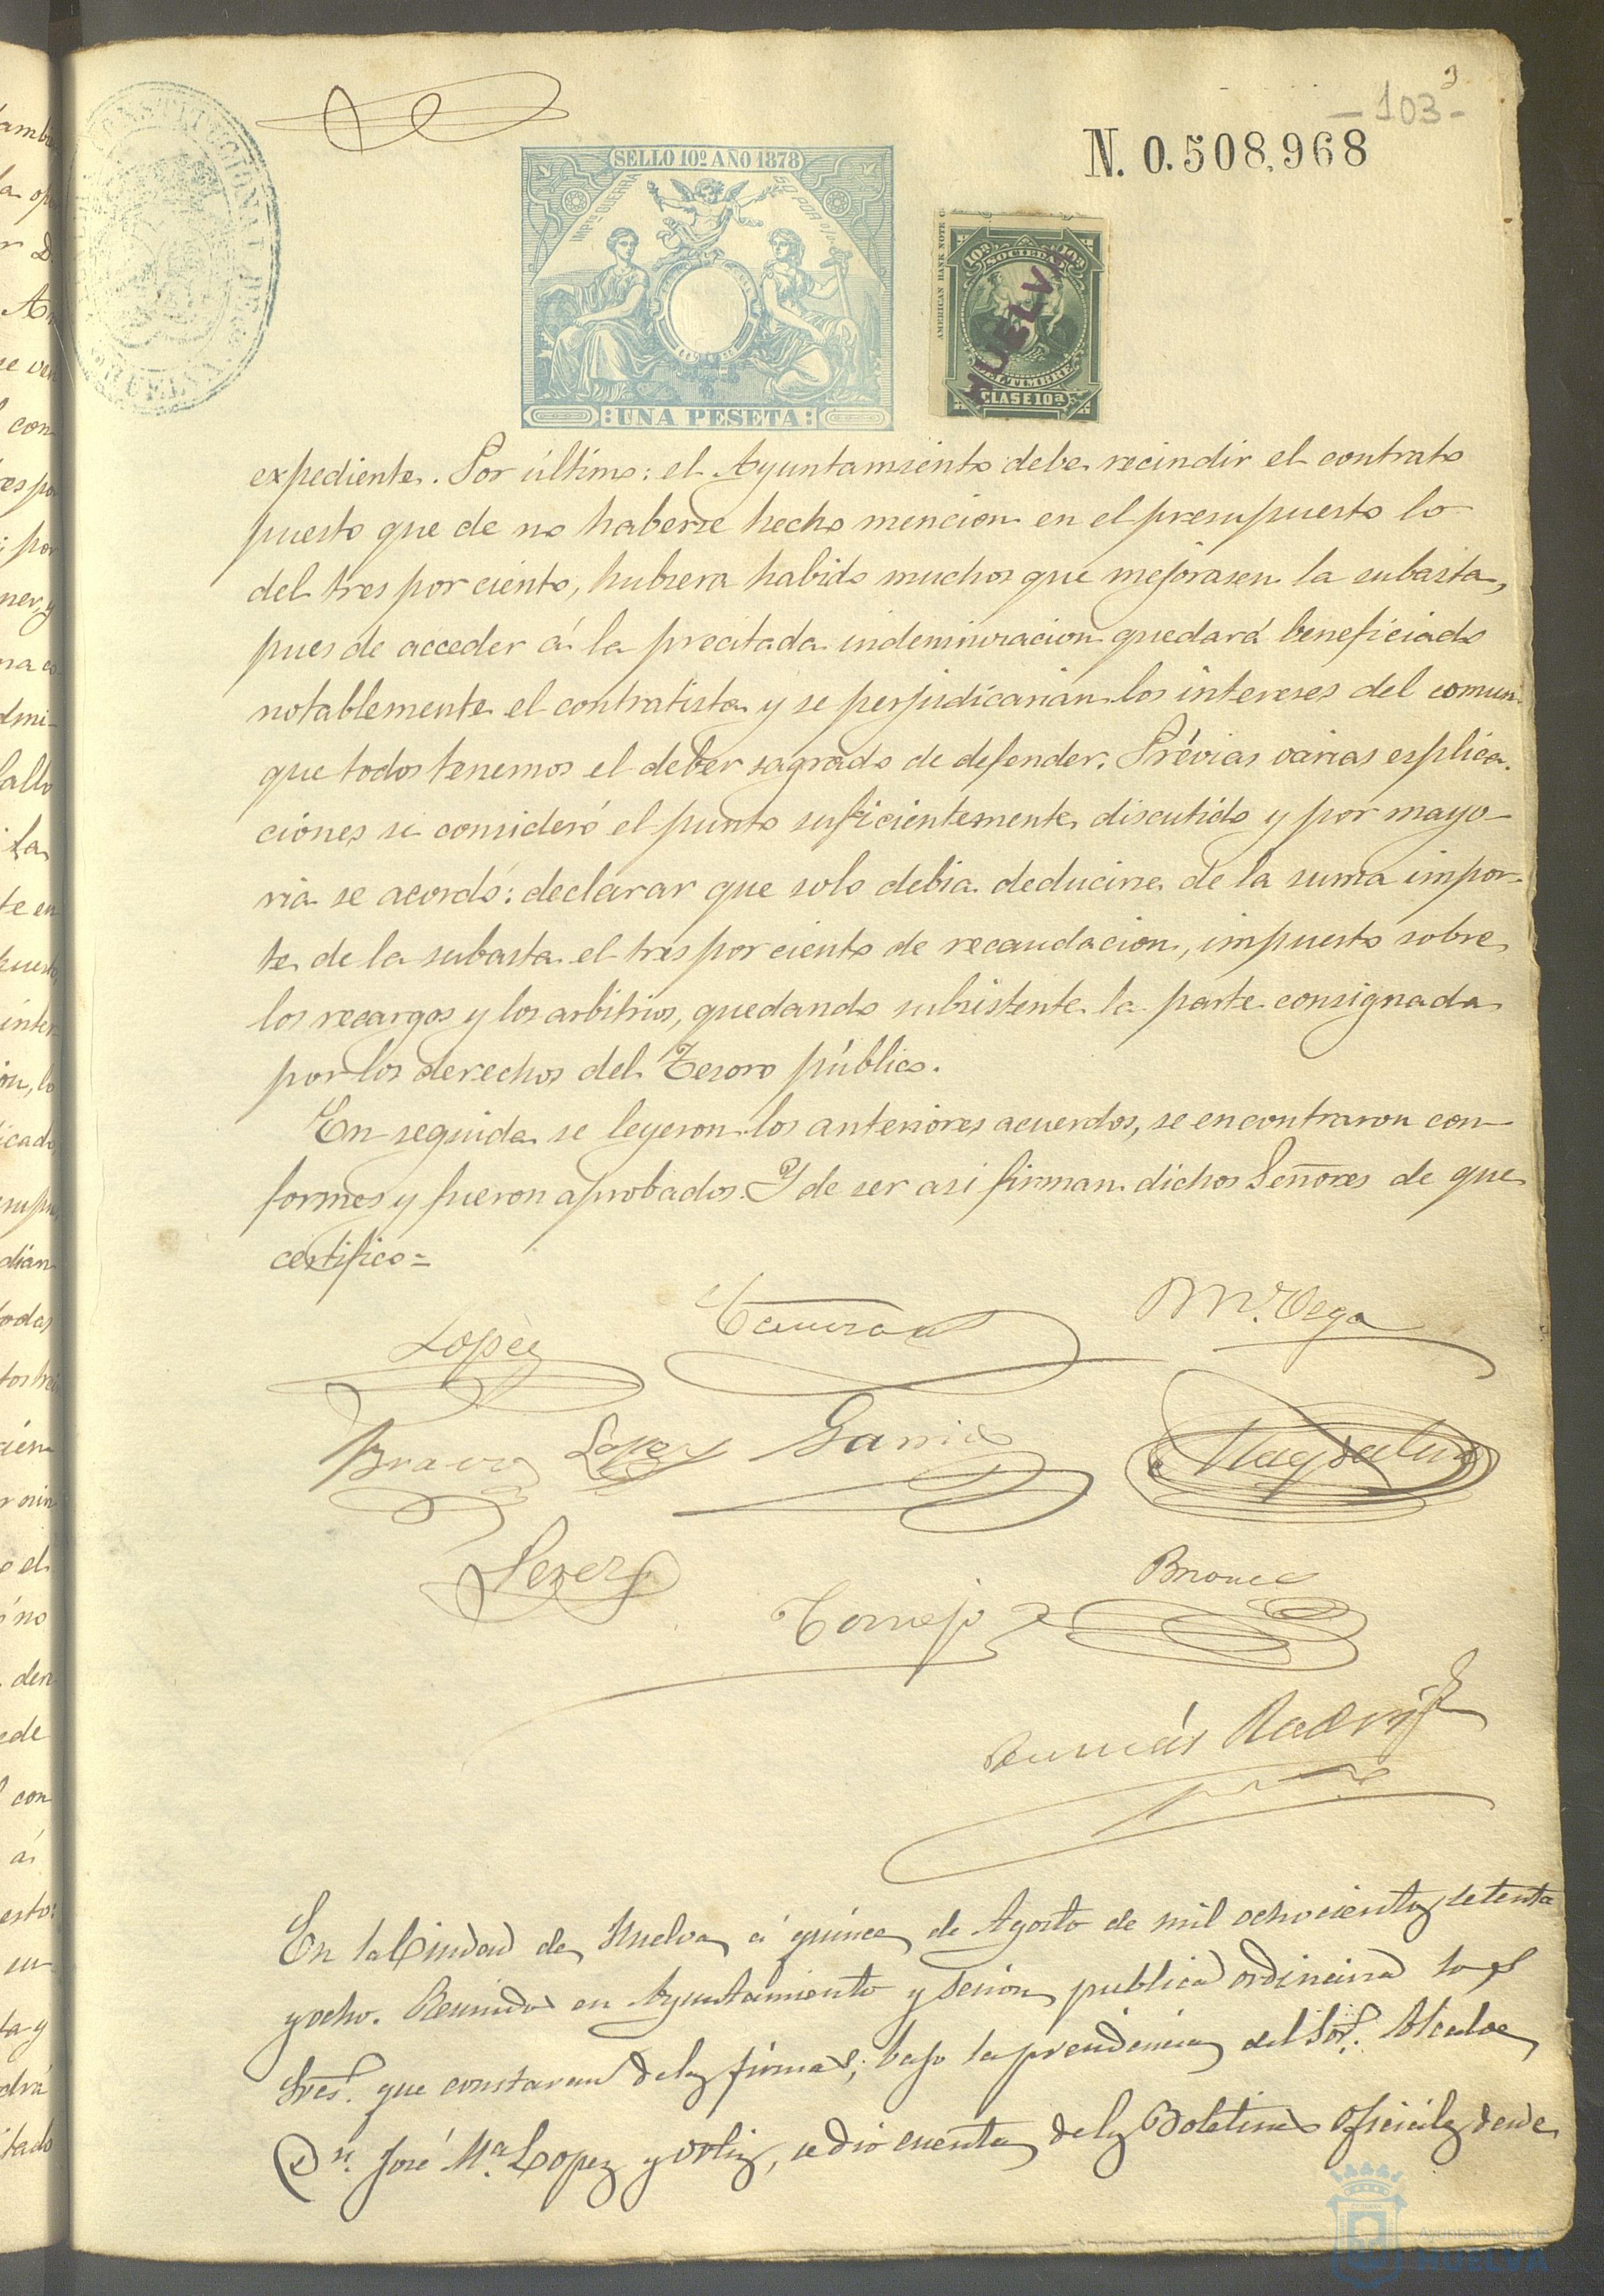 3
- 103 -
N. 0.508,968
SELLO 10º AÑO 1878
IMPTO GUERRA 50 POR 0/0
UNA PESETA
AMERICAN BANK NOTE C
10ª 10ª
SOCIEDAD
DEL TIMBRE
CLASE 10ª
HUELVA
CONSTITUCIONAL DE
HUELVA
expediente. Por último: el Ayuntamiento debe recindir el contrato
puesto que de no haberse hecho mencion en el presupuesto lo
del tres por ciento, hubiera habido muchos que mejorasen la subasta,
pues de acceder á la precitada indemnizacion quedará beneficiado
notablemente el contratista y se perjudicarian los intereses del comun
que todos tenemos el deber sagrado de defender. Prévias varias esplica-
ciones se consideró el punto suficientemente discutido y por mayo-
ria se acordó: declarar que solo debia deducirse de la suma impor-
te de la subasta el tres por ciento de recaudacion, impuesto sobre
los recargos y los arbitrios, quedando subsistente la parte consignada
por los derechos del Tesoro público.
En seguida se leyeron los anteriores acuerdos, se encontraron con-
formes y fueron aprobados. Y de ser asi firman dichos Señores de que
certifico=
Lopez
Mª. Vega
Bravo Lopez Garrido
Perez
Tornejo
En la Ciudad de Huelva á quince de Agosto de mil ochocientos setenta
y ocho. Reunidos en Ayuntamiento y sesion publica ordinaria los
Sres. que constaran de las firmas, bajo la presidencia del Sor. Alcalde
Dn. José Mª Lopez y Ortiz, se dio cuenta de los Boletines oficiales desde
Ayuntamiento de
HUELVA